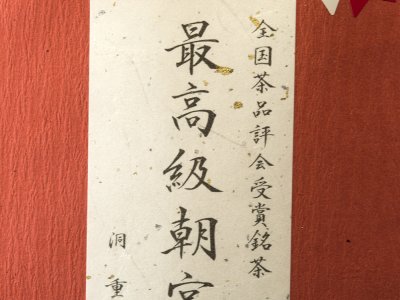 全国茶品評会受賞銘茶
最高級朝宮
洞重